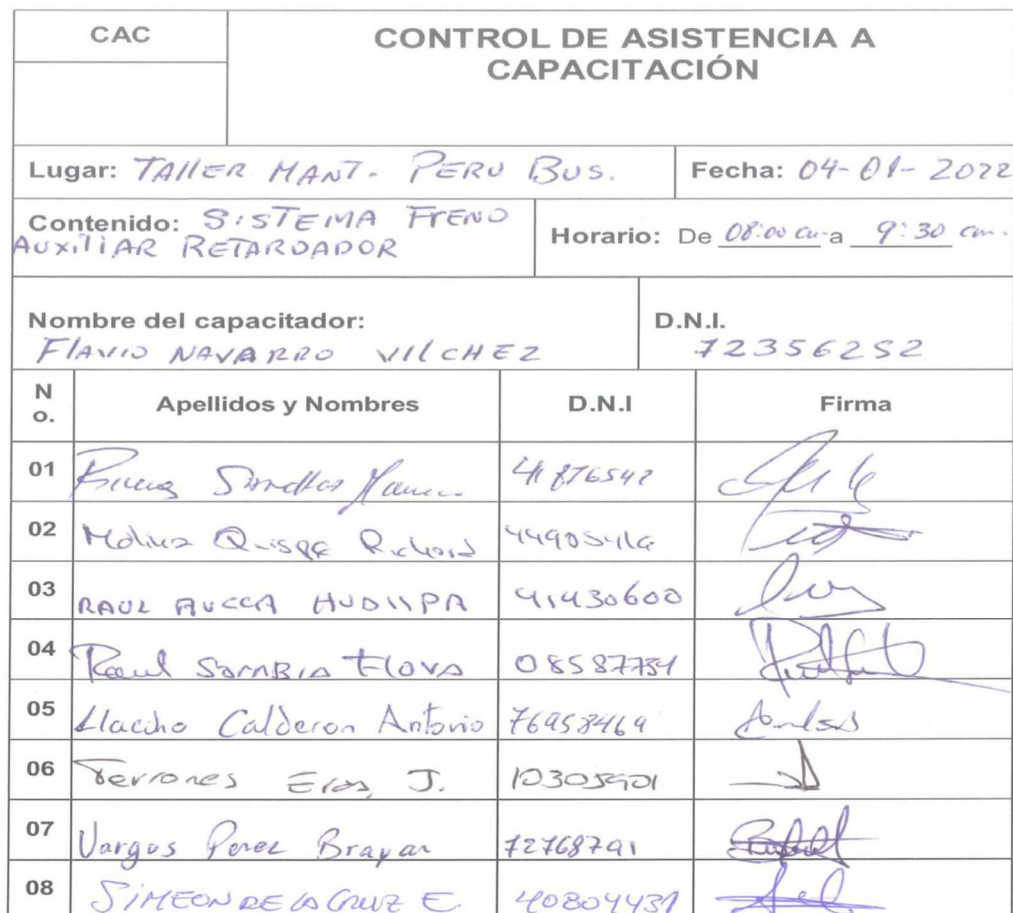 CAC
CONTROL DE ASISTENCIA A
CAPACITACIÓN
Lugar: TAllER MANT. PERU BUS.
Fecha: 04-01-2022
Contenido: SISTEMA FRENO
AUXILIAR RETARDADOR
Horario: De 08:00 am a 9:30 am.
Nombre del capacitador:
FlAVIO NAVARRO VIlCHEZ
D.N.I.
72356252
N
o.
Apellidos y Nombres
D.N.I
Firma
01 41876542
02 Molina Quispe Richard
03 RAUL AUCCA 41430600
04 Raul 08587734
05 Calderon Antonio 76958469
06 Terrones J. 10305901
07 Vargas Perez Brayan 72768791
08 SIMEON DE LA CRUZ E. 40804431